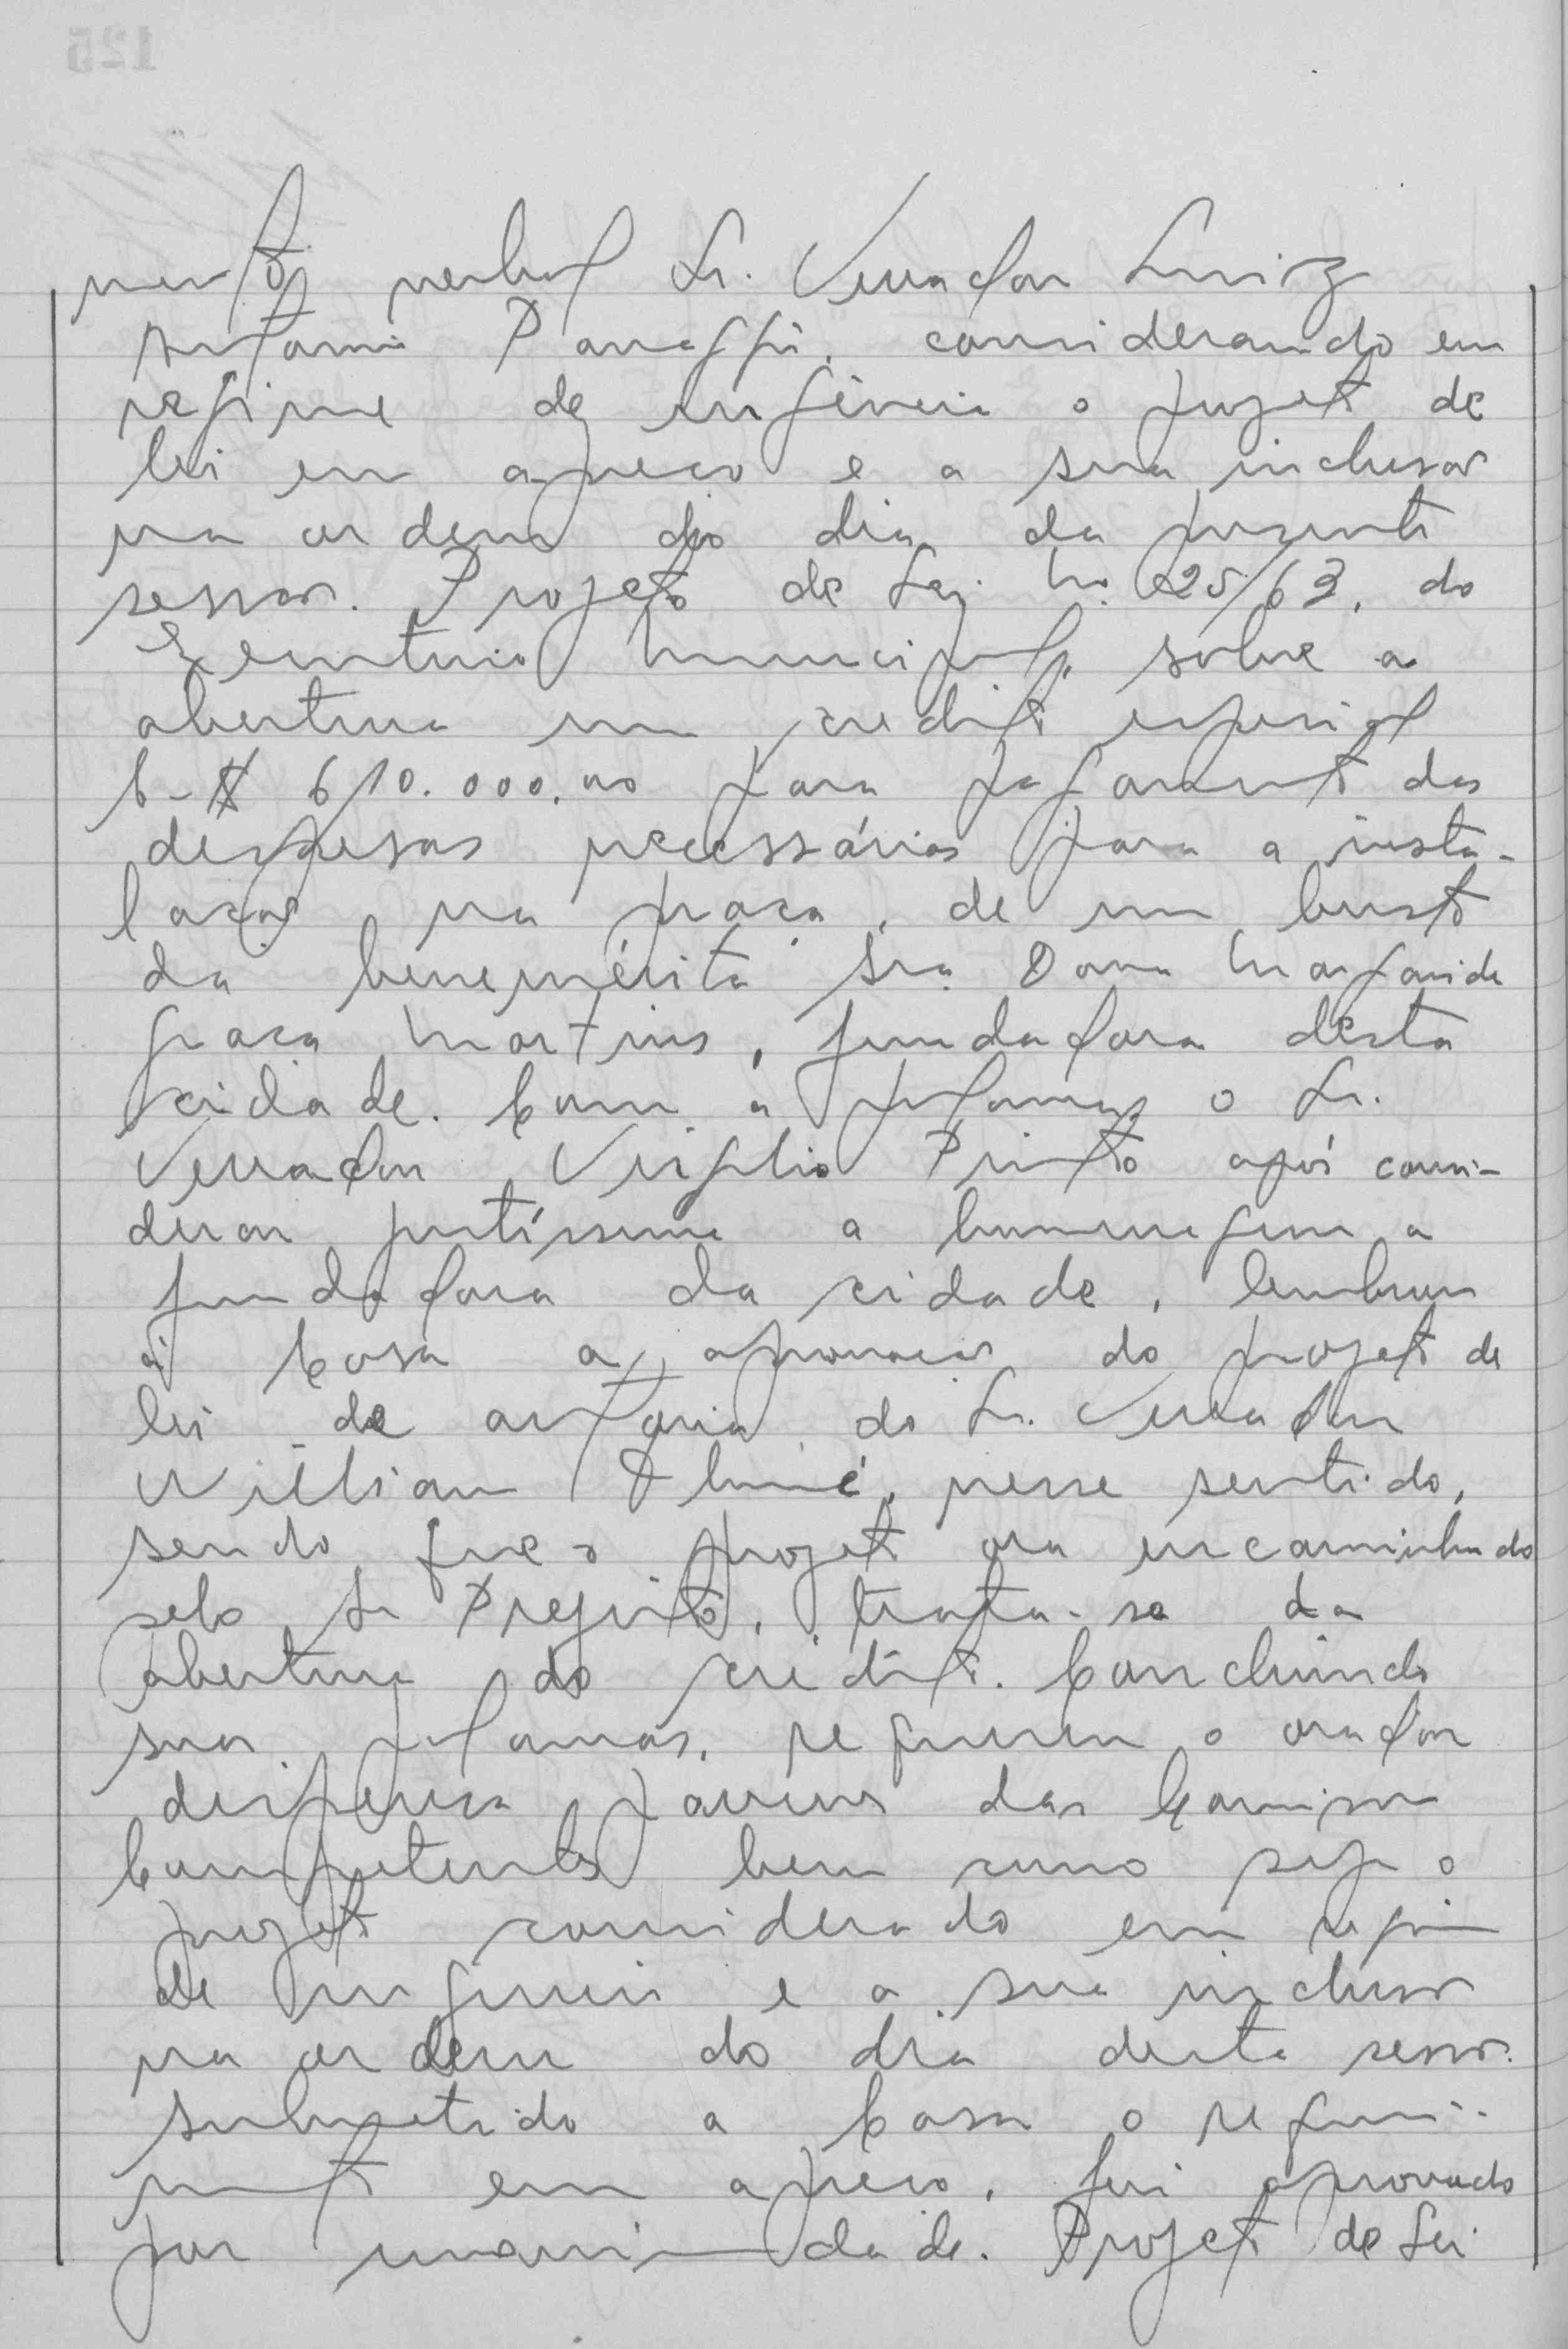 mento verbal Sr. Vereador Luiz
Antonio Panaggi, considerando em
regime de urgência o projeto de
lei em apreco e a sua inclusão
na ordem do dia da presente
sessão. Projeto de Lei no. 25/63, do
Executivo Municipal, sobre a
abertura um credito especial
C-$ 610.000,00 para pagamento das
despesas necessárias para a insta-
lação na praça, de um busto
da benemérita Sra Dona Margarida
Graça Martins, fundadora désta
cidade. Com a palavra o Sr.
Vereador Virgilio Pinto após consi-
derar justíssima a homenagem a
fundadora da cidade, lembrou
à Casa a aprovação do projeto de
lei de autoria do Sr. Vereador
William, nesse sentido,
sendo que o projeto ora encaminhado
pelo Sr Prefeito, trata-se da
abertura do crédito. Concluindo
suas palavras, requereu o orador
dispensa pareceres das Comissões
Competentes bem como seja o
projeto considerado em regime
de urgencia e a sua inclusão
na ordem do dia desta sessão.
Submetido a Casa o requeri-
mento em apreco, foi aprovado
por unanimidade. Projeto de Lei